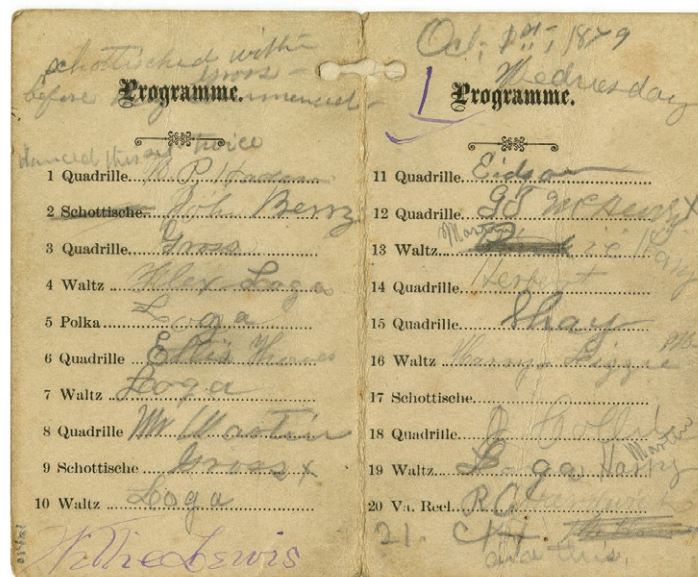 schottisched with
Gross -
before
Programme.
danced this twice
1 Quadrille
2 Schottische John Berry
3 Quadrille Gross
4 Waltz Alex Loga
5 Polka Loga
6 Quadrille Ellis
7 Waltz Loga
8 Quadrille Mr Martin
9 Schottische Gross x
10 Waltz Loga
Willie Lewis
Oct, 1st, 1879
Wednesday
1
Programme.
11 Quadrille Eidson
12 Quadrille GT McHenry
13 Waltz Martin
14 Quadrille Herbert
15 Quadrille Shay
16 Waltz Harry Lizzie
17 Schottische
18 Quadrille J
19 Waltz Loga Harry Martin
20 Va. Reel. R C
21.
and this.